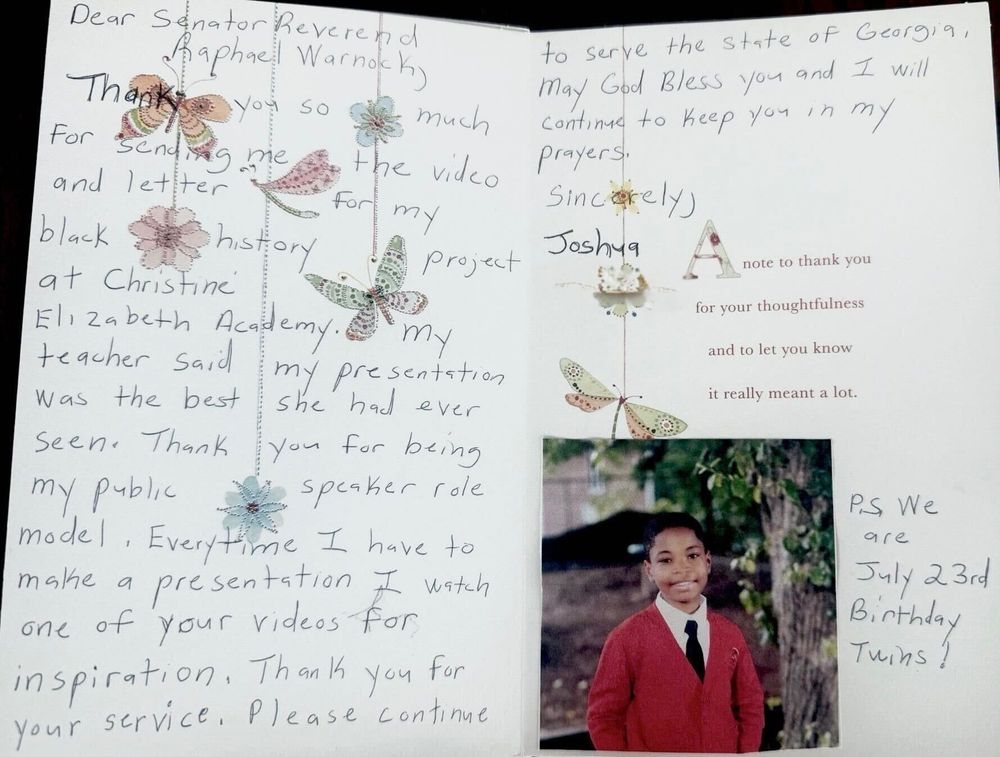 Dear Senator Reverend
Raphael Warnock,
Thank you so much
For sending me the video
and letter for my
black history project
at Christine
Elizabeth Academy. My
teacher said my presentation
was the best she had ever
seen. Thank you for being
my public speaker role
model. Everytime I have to
make a presentation I watch
one of your videos for
inspiration. Thank you for
your service. Please continue
to serve the state of Georgia,
May God Bless you and I will
continue to keep you in my
prayers.
Sincerely,
Joshua
A note to thank you
for your thoughtfulness
and to let you know
it really meant a lot.
P.S. We
are
July 23rd
Birthday
Twins!